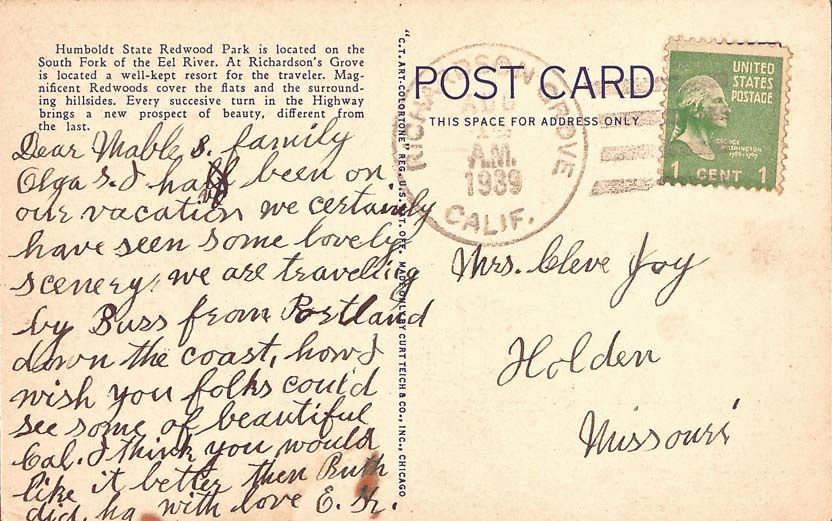 Humboldt State Redwood Park is located on the
South Fork of the Eel River. At Richardson's Grove
is located a well-kept resort for the traveler. Mag-
nificent Redwoods cover the flats and the surround-
ing hillsides. Every succesive turn in the Highway
brings a new prospect of beauty, different from
the last.
Dear Mable & family
Olga & I have been on
our vacation we certainly
have seen some lovely
scenery, we are travelling
by Buss from Portland
down the coast, how I
wish you folks could
see some of beautiful
Cal. I think you would
like it better then Ruth
did, ha with love E.
"C.T. ART-COLORTONE" REG. U.S. PAT. OFF. MADE ONLY BY CURT TEICH & CO., INC., CHICAGO
POST CARD
THIS SPACE FOR ADDRESS ONLY
RICHARDSON GROVE
A.M.
1939
CALIF.
UNITED
STATES
POSTAGE
GEORGE
WASHINGTON
1789-1797
1 CENT 1
Mrs. Cleve Joy
Holden
Missouri